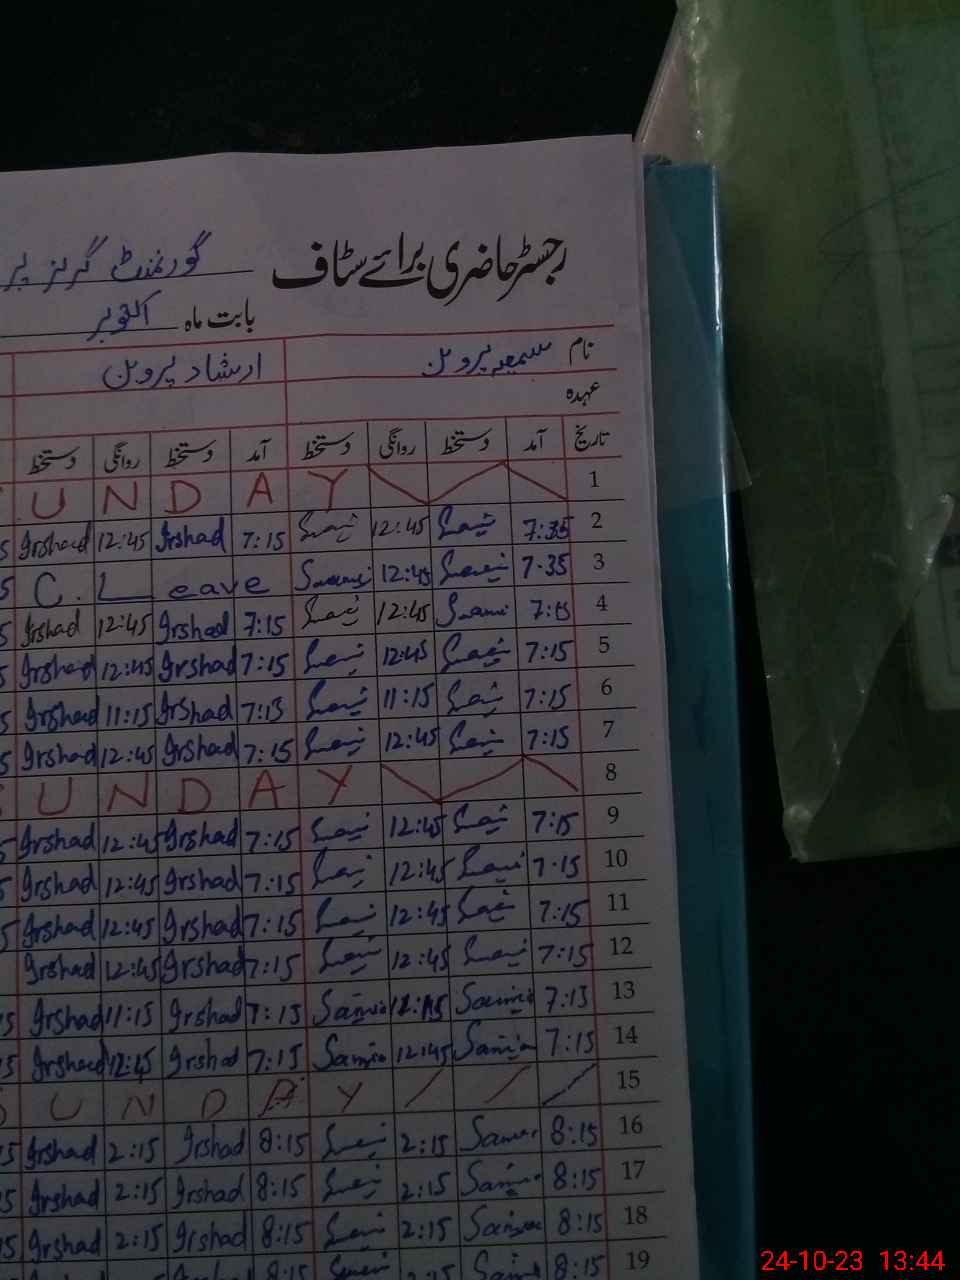 رجسٹر حاضری برائے سٹاف گورنمنٹ گرلز پر
بابت ماہ اکتوبر
نام سمعیہ پروین ارشاد پروین
عہدہ
تاریخ آمد دستخط روانگی دستخط آمد دستخط روانگی دستخط
1 SUNDAY
2 7:35 12:45 7:15 Irshad 12:45 Irshad
3 7:35 12:45 C. Leave
4 12:45 7:15 Irshad 12:45 Irshad
5 7:15 12:45 7:15 Irshad 12:45 Irshad
6 7:15 11:15 7:15 Irshad 11:15 Irshad
7 7:15 12:45 7:15 Irshad 12:45 Irshad
8 SUNDAY
9 7:15 12:45 7:15 Irshad 12:45 Irshad
10 7:15 12:45 7:15 Irshad 12:45 Irshad
11 7:15 12:45 7:15 Irshad 12:45 Irshad
12 7:15 12:45 7:15 Irshad 12:45 Irshad
13 7:15 Samia Samia 7:15 Irshad 11:15 Irshad
14 7:15 Samia 12:45 Samia 7:15 Irshad Irshad
15 SUNDAY
16 8:15 2:15 8:15 Irshad 2:15 Irshad
17 8:15 2:15 8:15 Irshad 2:15 Irshad
18 8:15 2:15 8:15 Irshad 2:15 Irshad
19
24-10-23 13:44